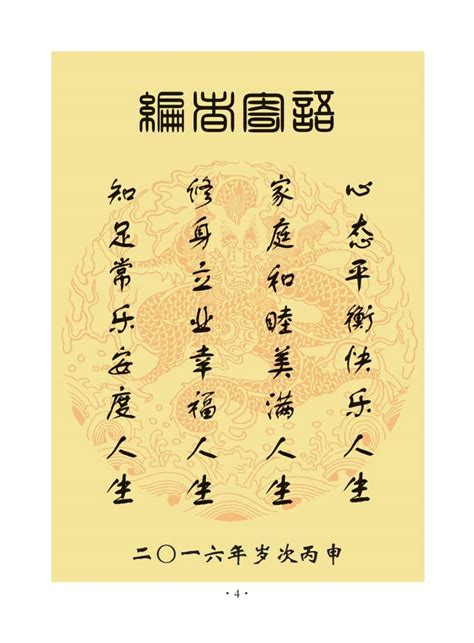 編者寄語
心态平衡快乐人生
家庭和睦美满人生
修身立业幸福人生
知足常乐安度人生
二〇一六年岁次丙申
·4·